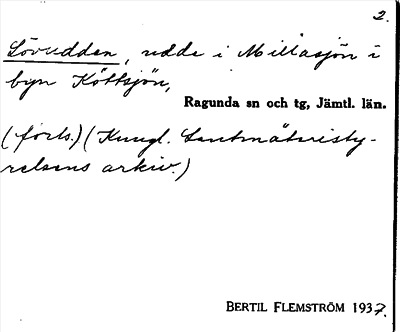 2.
Lövudden, udde i Mellasjön i
byn Köttsjön,
Ragunda sn och tg, Jämtl. län.
(forts.) (Kungl. Lantmäteristy-
relsens arkiv.)
BERTIL FLEMSTRÖM 1937.